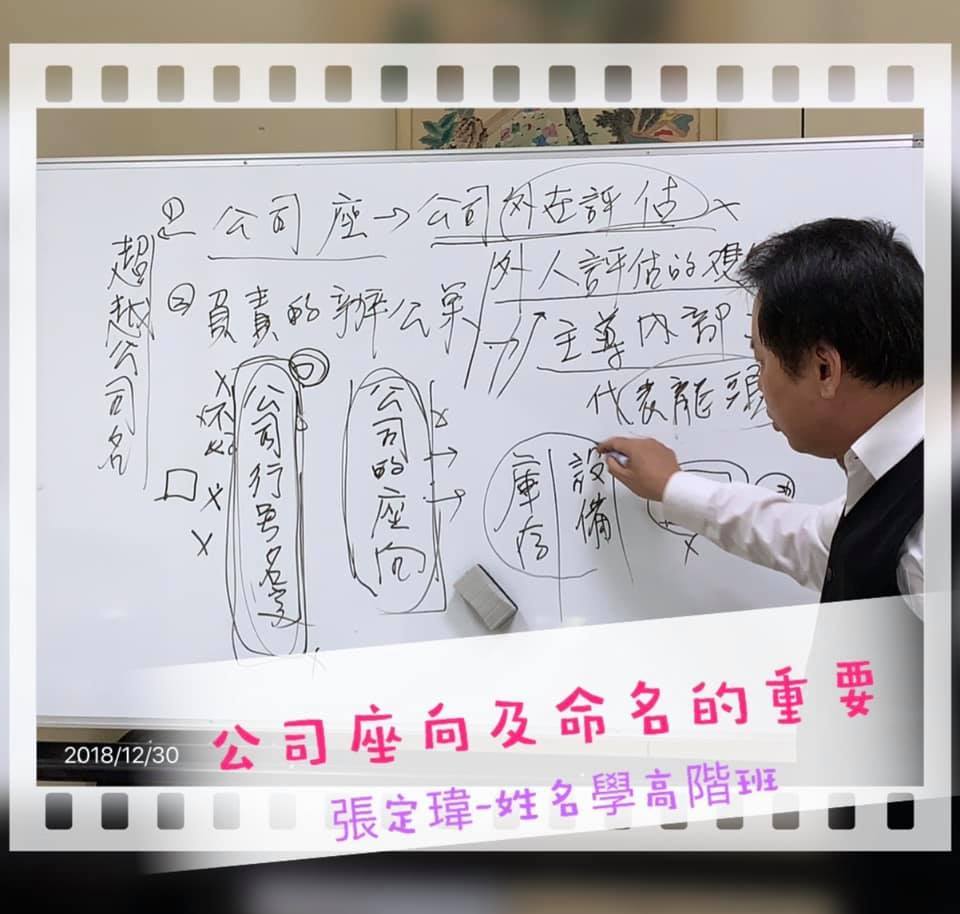 ① 公司座→公司外在評估
超越公司名
外人評估的
② 負責的辦公
主尊內部
代表龍頭
公司行号名字
公司的座向
庫存
設備
2018/12/30
公司座向及命名的重要
張定瑋-姓名學高階班